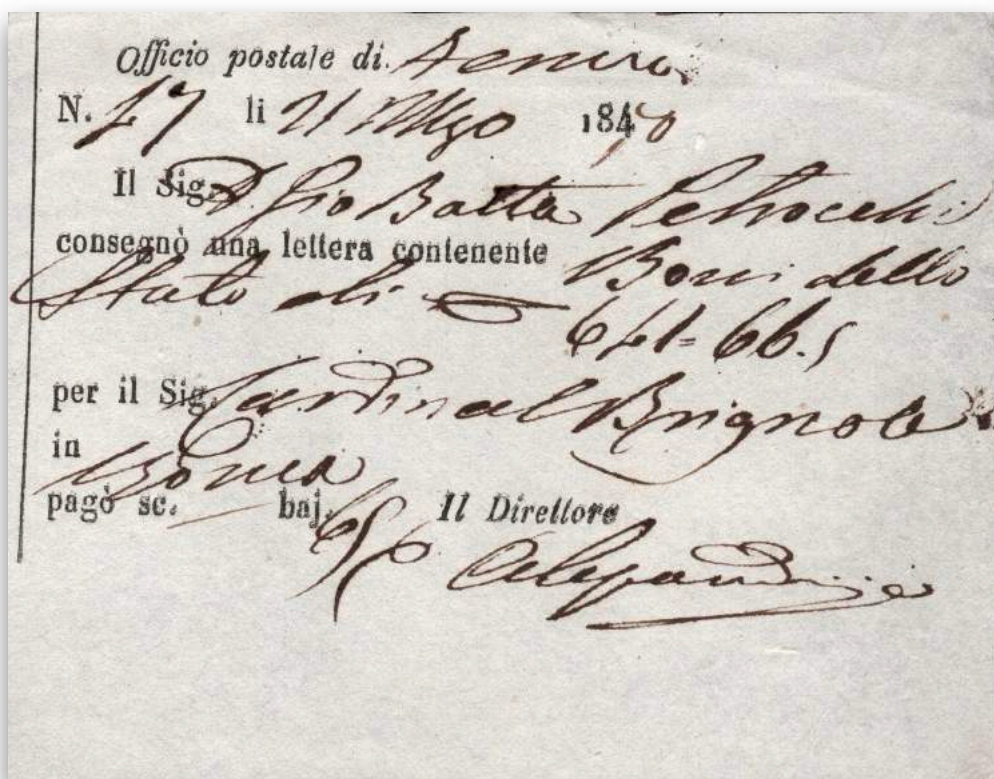 Officio postale di
N. 17 li 21 Mgo 1850
Il Sig. D. Gio Batta Petrocchi
consegnò una lettera contenente Boni dello
Stato di
per il Sig. Cardinal Brignole
in Roma
pagò sc. baj. 65 Il Direttore